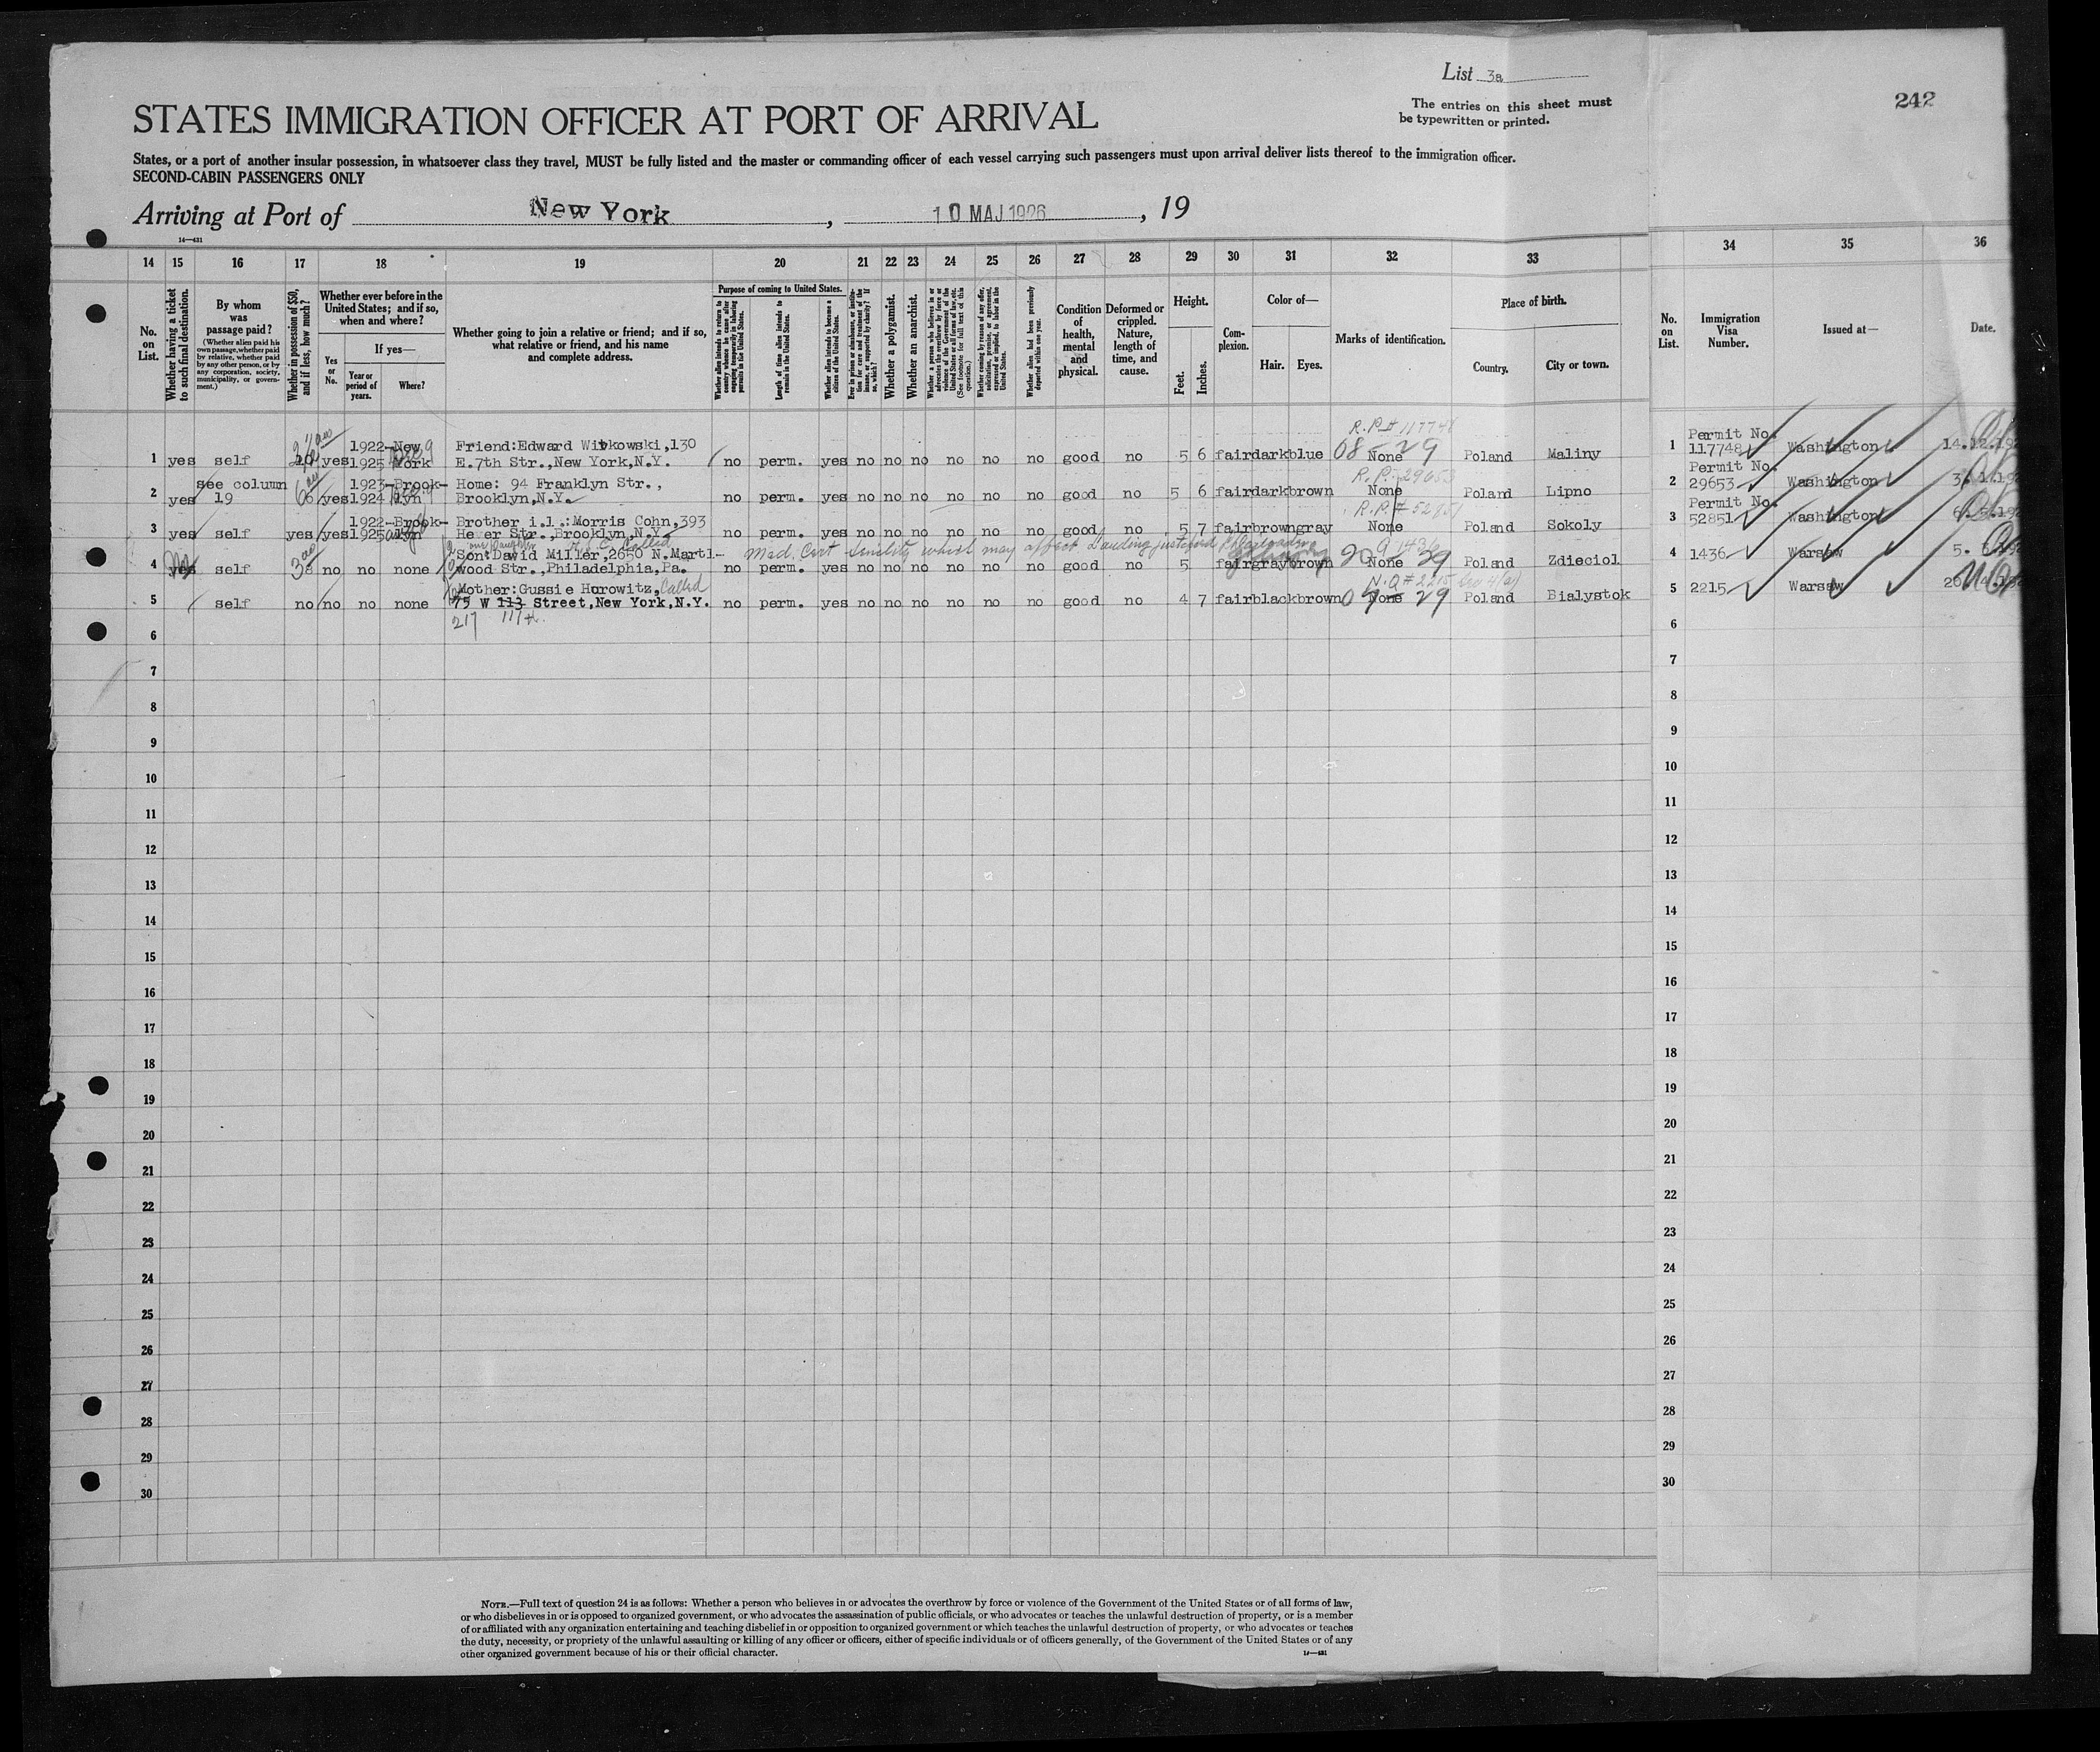 List 3a
The entries on this sheet must
be typewritten or printed.
242
STATES IMMIGRATION OFFICER AT PORT OF ARRIVAL
States, or a port of another insular possession, in whatsoever class they travel, MUST be fully listed and the master or commanding officer of each vessel carrying such passengers must upon arrival deliver lists thereof to the immigration officer.
SECOND-CABIN PASSENGERS ONLY
Arriving at Port of New York, 10 MAJ 1926, 19
14—431
14 15 16 17 18 19 20 21 22 23 24 25 26 27 28 29 30 31 32 33 34 35 36
No. on List.
Whether having a ticket to such final destination.
By whom was passage paid?
(Whether alien paid his own passage, whether paid by relative, whether paid by any other person, or by any corporation, society, municipality, or government.)
Whether in possession of $50, and if less, how much?
Whether ever before in the United States; and if so, when and where?
Yes or No.
If yes—
Year or period of years.
Where?
Whether going to join a relative or friend; and if so, what relative or friend, and his name and complete address.
Purpose of coming to United States.
Whether alien intends to return to country whence he came after engaging temporarily in laboring pursuits in the United States.
Length of time alien intends to remain in the United States.
Whether alien intends to become a citizen of the United States.
Ever in prison or almshouse, or institution for care and treatment of the insane, or supported by charity? If so, which?
Whether a polygamist.
Whether an anarchist.
Whether a person who believes in or advocates the overthrow by force or violence of the Government of the United States or all forms of law, etc. (See footnote for full text of this question.)
Whether coming by reason of any offer, solicitation, promise, or agreement, expressed or implied, to labor in the United States.
Whether alien had been previously deported within one year.
Condition of health, mental and physical.
Deformed or crippled. Nature, length of time, and cause.
Height.
Feet.
Inches.
Complexion.
Color of—
Hair.
Eyes.
Marks of identification.
Place of birth.
Country.
City or town.
No. on List.
Immigration Visa Number.
Issued at—
Date.
R.P.# 117748
1 yes self yes 1922- New Friend:Edward Witkowski,130 no perm. yes no no no no no no good no 5 6 fair dark blue 08-29 None Poland Maliny 1 Permit No. 117748 Washington 14.12.192
1925 York E.7th Str.,New York,N.Y.
R.P.# 29653
2 yes see column 19 yes 1923- Brook- Home: 94 Franklyn Str., no perm. yes no no no no no no good no 5 6 fair dark brown None Poland Lipno 2 Permit No. 29653 Washington
1924 lyn Brooklyn,N.Y.
R.P.# 52851
3 yes self yes yes 1922- Brook- Brother i.l.:Morris Cohn,393 no perm. yes no no no no no no good no 5 7 fair brown gray None Poland Sokoly 3 Permit No. 52851 Washington
1925 lyn Str.,Brooklyn,N.Y.
Med. Cert senility which may affect Landing
4 yes self no no none Son:David Miller,2650 N.Martl- no perm. yes no no no no no no good no 5 fair gray brown 20 None 29 Poland Zdieciol 4 1436 Warsaw
wood Str.,Philadelphia,Pa.
N.Q# 2215 Sec 4(a)
5 self no no no none Mother:Gussie Horowitz, Called no perm. yes no no no no no no good no 4 7 fair black brown None 29 Poland Bialystok 5 2215 Warsaw
75 W 113 Street,New York,N.Y.
217 117th.
6 6
7 7
8 8
9 9
10 10
11 11
12 12
13 13
14 14
15 15
16 16
17 17
18 18
19 19
20 20
21 21
22 22
23 23
24 24
25 25
26 26
27 27
28 28
29 29
30 30
NOTE.—Full text of question 24 is as follows: Whether a person who believes in or advocates the overthrow by force or violence of the Government of the United States or of all forms of law,
or who disbelieves in or is opposed to organized government, or who advocates the assassination of public officials, or who advocates or teaches the unlawful destruction of property, or is a member
of or affiliated with any organization entertaining and teaching disbelief in or opposition to organized government or which teaches the unlawful destruction of property, or who advocates or teaches
the duty, necessity, or propriety of the unlawful assaulting or killing of any officer or officers, either of specific individuals or of officers generally, of the Government of the United States or of any
other organized government because of his or their official character.
14—431